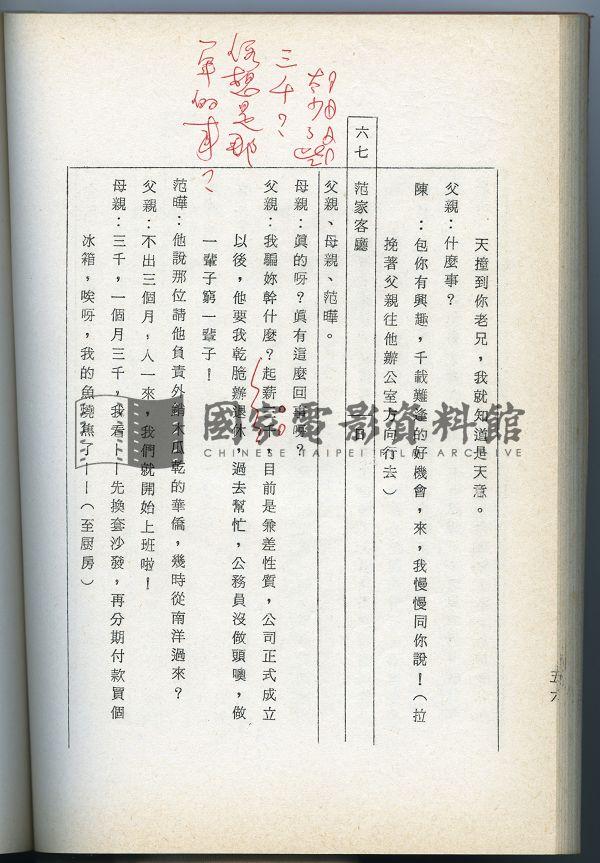 天撞到你老兄，我就知道是天意。
父親：什麼事？
陳　：包你有興趣，千載難逢的好機會，來，我慢慢同你說！（拉
挽著父親往他辦公室方向行去）
六七
范家客廳
日
父親、母親、范曄。
母親：真的呀？真有這麼回事呀？
父親：我騙妳幹什麼？起薪三千，目前是兼差性質，公司正式成立
以後，他要我乾脆辦退休，過去幫忙，公務員沒做頭噢，做
一輩子窮一輩子！
范曄：他說那位請他負責外銷木瓜乾的華僑，幾時從南洋過來？
父親：不出三個月，人一來，我們就開始上班啦！
母親：三千，一個月三千，我看——先換套沙發，再分期付款買個
冰箱，唉呀，我的魚燒焦了——（至厨房）
三千？
你想是那
一年的事？
國家電影資料館
CHINESE TAIPEI FILM ARCHIVE